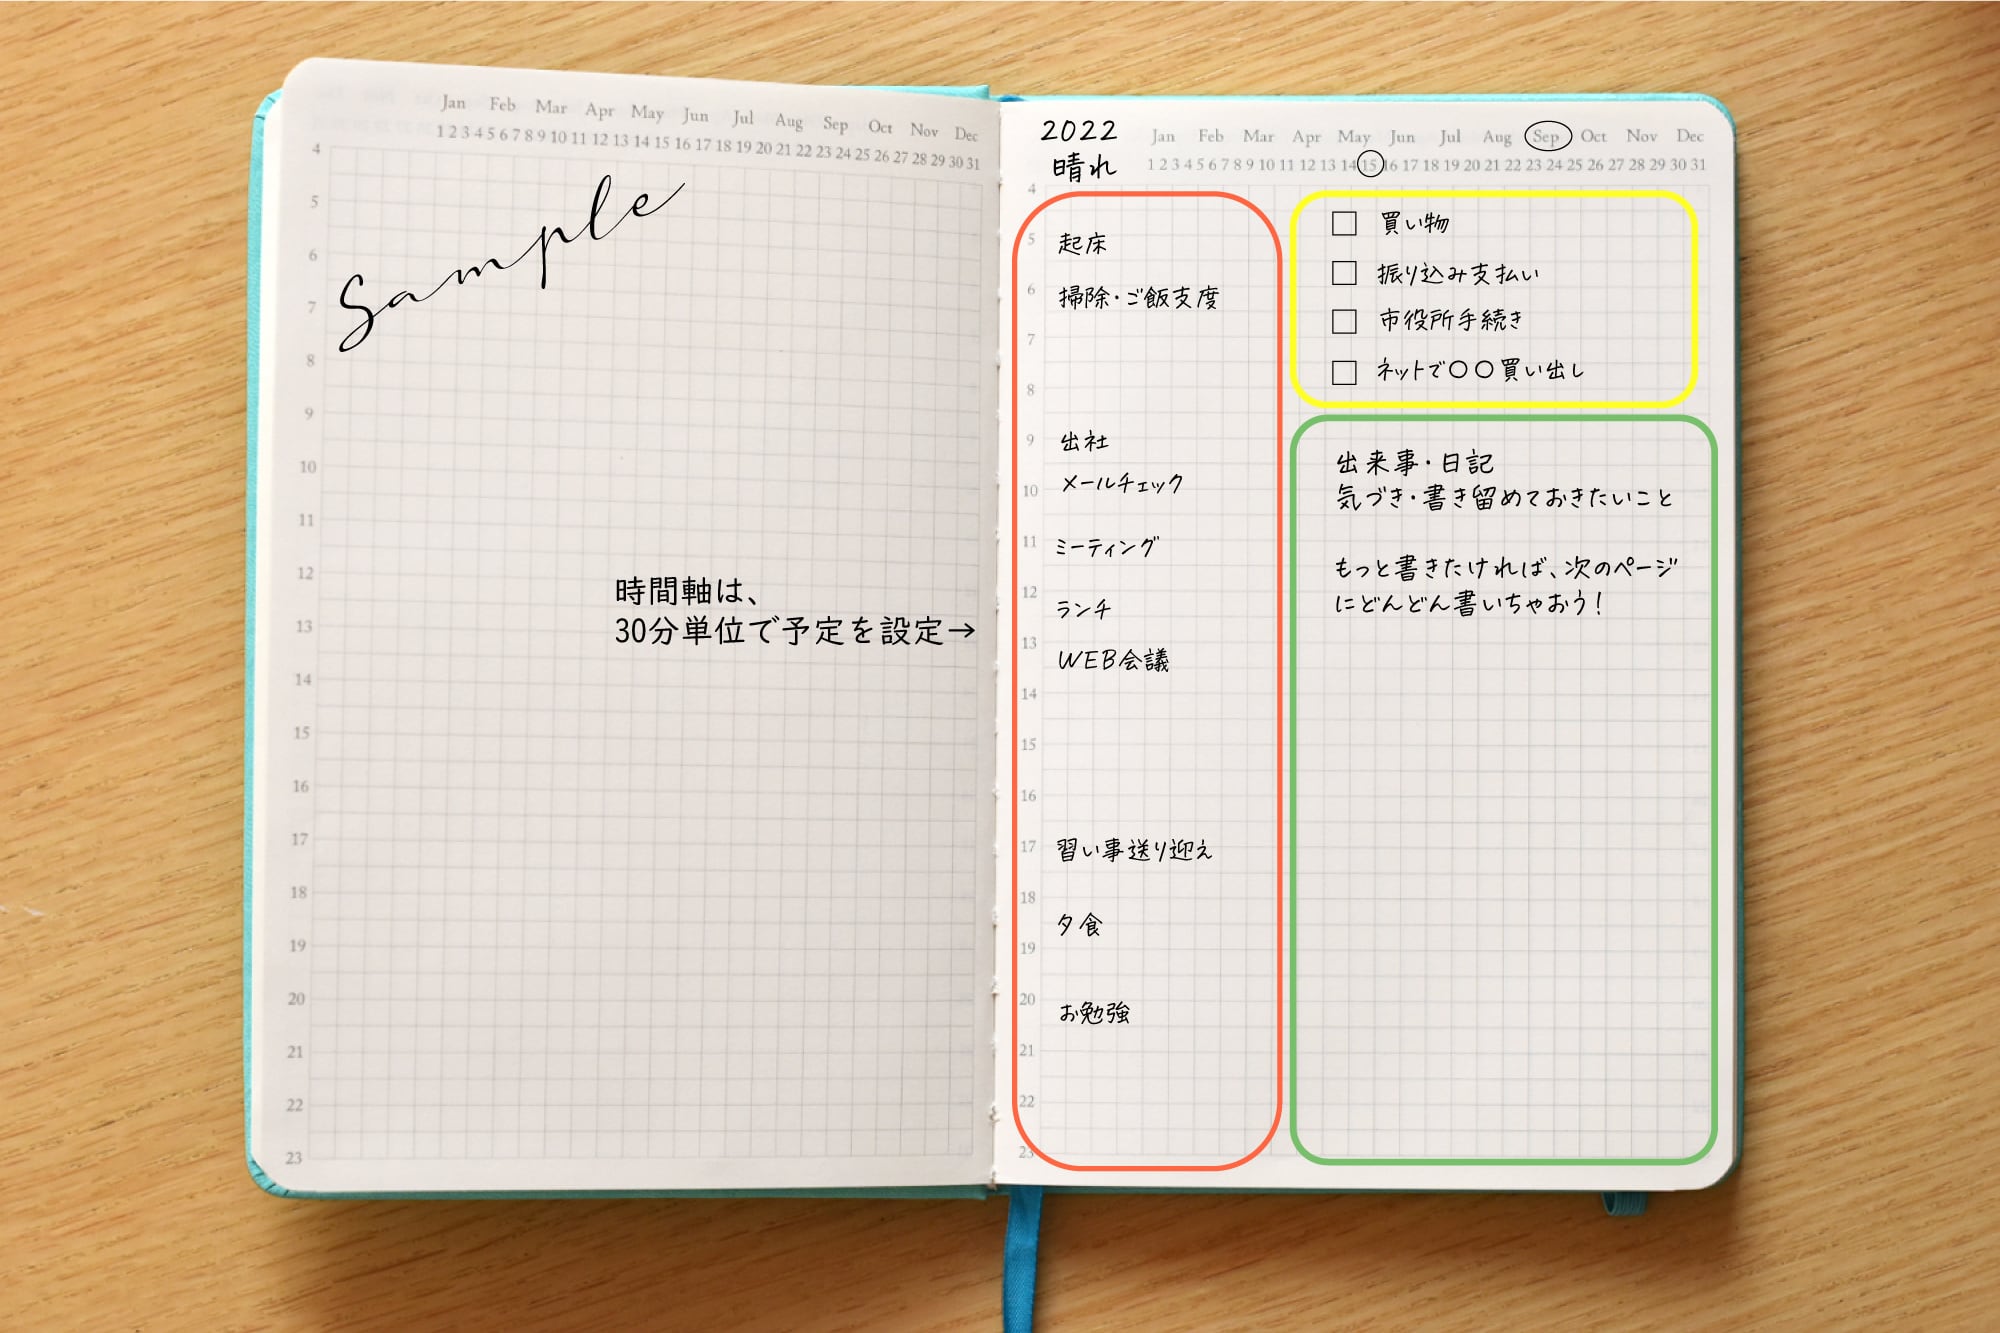 Jan Feb Mar Apr May Jun Jul Aug Sep Oct Nov Dec
1 2 3 4 5 6 7 8 9 10 11 12 13 14 15 16 17 18 19 20 21 22 23 24 25 26 27 28 29 30 31
4
5
6
7
8
9
10
11
12
13
14
15
16
17
18
19
20
21
22
23
Sample
時間軸は、
30分単位で予定を設定→
2022
晴れ
Jan Feb Mar Apr May Jun Jul Aug Sep Oct Nov Dec
1 2 3 4 5 6 7 8 9 10 11 12 13 14 15 16 17 18 19 20 21 22 23 24 25 26 27 28 29 30 31
4
5 起床
6 掃除・ご飯支度
7
8
9 出社
10 メールチェック
11 ミーティング
12 ランチ
13 WEB会議
14
15
16
17 習い事送り迎え
18
夕食
19
20 お勉強
21
22
23
□ 買い物
□ 振り込み支払い
□ 市役所手続き
□ ネットで〇〇買い出し
出来事・日記
気づき・書き留めておきたいこと
もっと書きたければ、次のページ
にどんどん書いちゃおう！